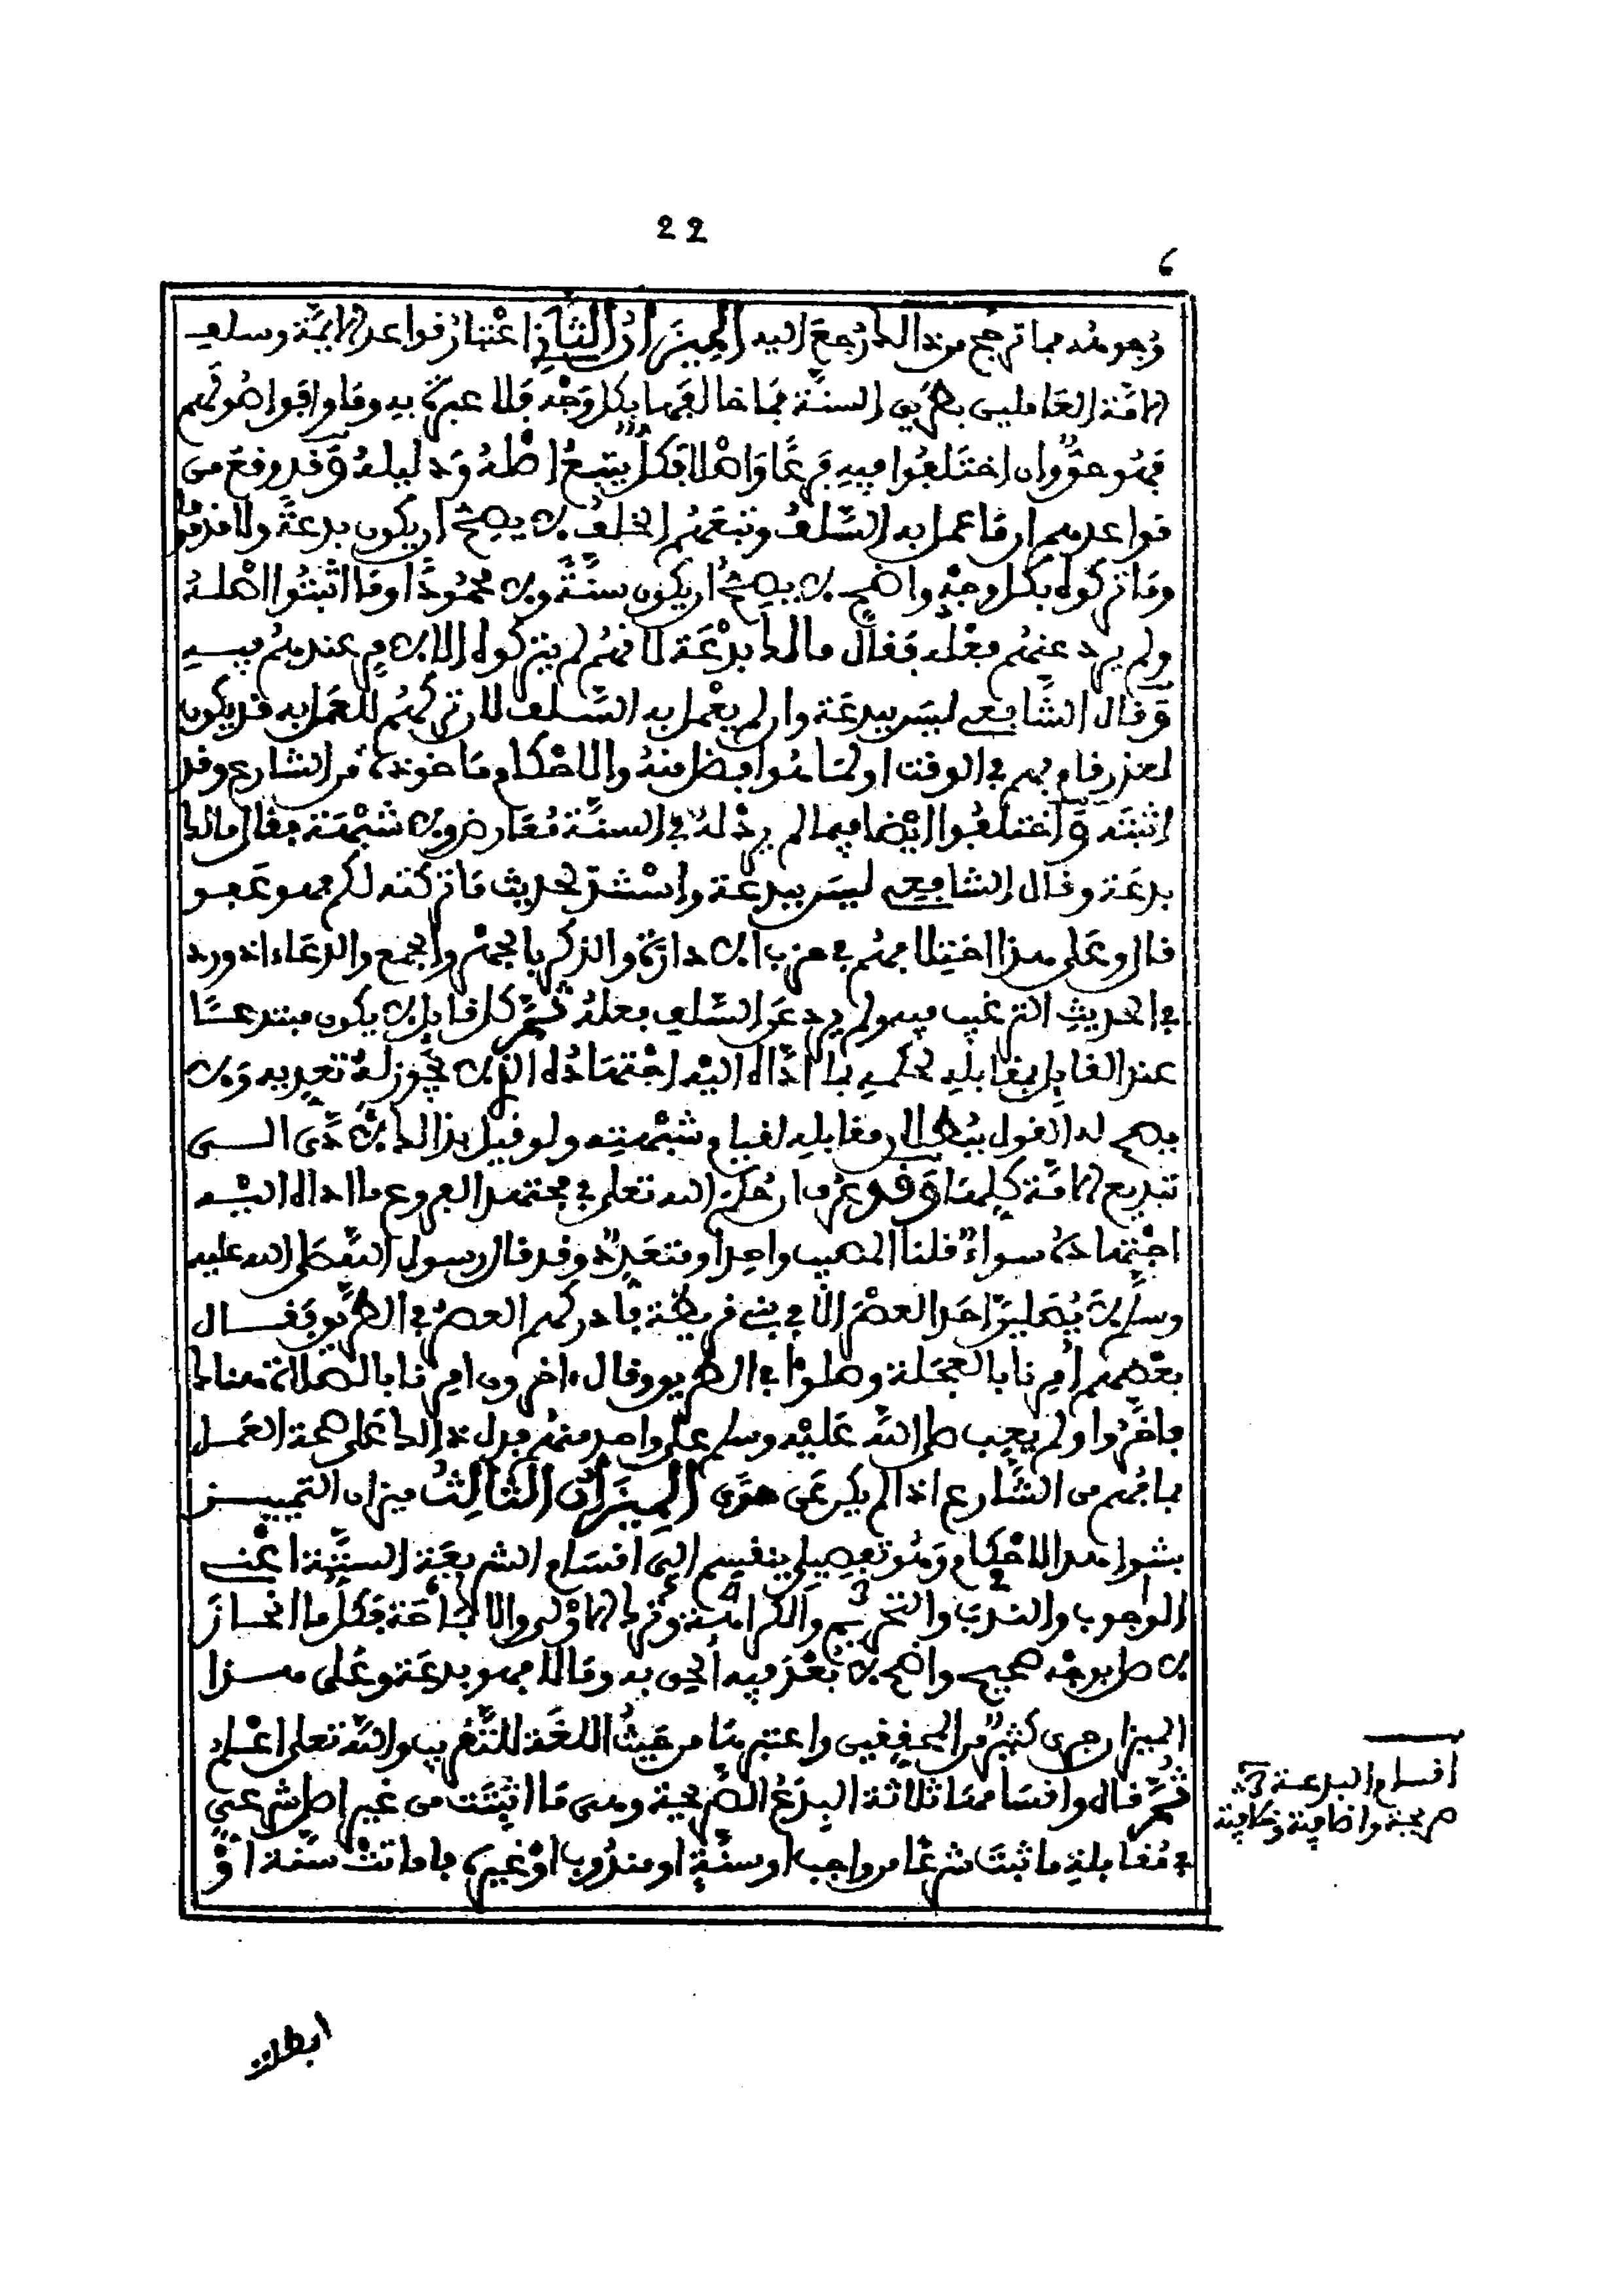 22
6
وجوهه فما ترجح من ذالك رجع اليه الميزان الثاني اعتبار قواعد الايمة وسلف
الامة العاملين بطريق السنة فما خالفها بكل وجه فلا عبرة به وما وافق اصولهم
فهو حق وان اختلفوا فيه فرعا واصلا فكل يتبع اصله ودليله وقد وقع من
قواعدهم ان ما عمل به السلف وتبعهم الخلف لا يصح ان يكون بدعة ولا مذموما
وما تركوه بكل وجه واضح لا يصح ان يكون سنة ولا محمودا وما اثبتوا اصله
ولم يرد عنهم فعله فقال مالك بدعة لانهم لم يتركوه الا لامر عندهم فيه
وقال الشافعي ليس ببدعة وان لم يعمل به السلف لان تركهم للعمل به قد يكون
لعذر قام بهم في الوقت او لما هو افضل منه والاحكام ماخوذة من الشارع وقد
اثبته واختلفوا ايضا فيما لم يرد له في السنة معارض ولا شبهة فقال مالك
بدعة وقال الشافعي ليس ببدعة واستند لحديث ما تركته لكم فهو عفو
قال وعلى هذا اختلافهم في حزب الادارة والذكر بالجهر والجمع والدعاء اذ ورد
في الحديث الترغيب فيه ولم يرد عن السلف فعله ثم كل قايل لا يكون مبتدعا
عند القايل بمقابله لحكمه بما اداه اليه اجتهاده الذي لا يجوز له تعديه ولا
يصح له القول ببطلان مقابله لقيام شبهته ولو قيل بذالك لادى الى
تبديع الامة كلها وقد عرف ان حكم الله تعلى في مجتهد الفروع ما اداه اليه
اجتهاده سواء قلنا المصيب واحد او متعدد وقد قال رسول الله صلى الله عليه
وسلم لا يصلين احد العصر الا في بني قريظة فادركهم العصر في الطريق فقال
بعضهم امرنا بالعجلة وصلوا في الطريق وقال ءاخرون امرنا بالصلاة هناك
فاخروا ولم يعب صلى الله عليه وسلم على واحد منهم فدل ذالك على صحة العمل
بما فهم من الشارع اذا لم يكن عن هوى الميزان الثالث ميزان التمييز
بشواهد الاحكام وهو تفصيلي ينقسم الى اقسام الشريعة الستة اعني
الوجوب والندب والتحريم والكراهة وترك الاولى والاباحة فكل ما انحاز
لاصل بوجه صحيح واضح لا بعد فيه الحق به وما لا فهو بدعة وعلى هذا
الميزان جرى كثير من المحققين واعتبرها من حيث اللغة للتقريب والله تعلى اعلم
ثم قال واقسامها ثلاثة البدع الصريحة وهي ما اثبتت من غير اصل شرعي
في مقابلة ما ثبت شرعا من واجب او سنة او مندوب او غيره فاماتت سنة او
اقسام البدعة 3
صريحة واضافية وخلافية
ابطلت